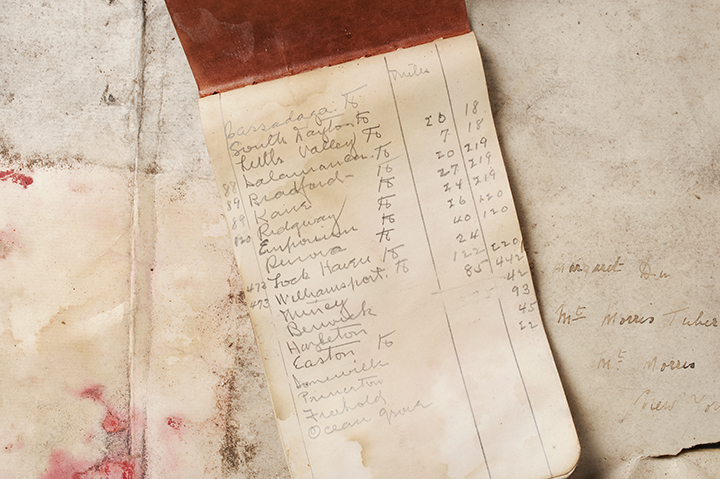 miles
Cassadaga to
South Dayton to 18
Little Valley to 20 18
88 Salamanca to 7 219
89 Bradford to 20 219
89 Kane to 27 219
120 Ridgway to 24 120
Emporium to 26 120
Renova 40
Lock Haven to 24 220
473 Williamsport to 122 442
Muncy 85 42
Berwick 93
Hazleton 45
Easton to 22
Princeton
Freehold
Ocean Grove
Margaret
Mt Morris
Mt Morris
New